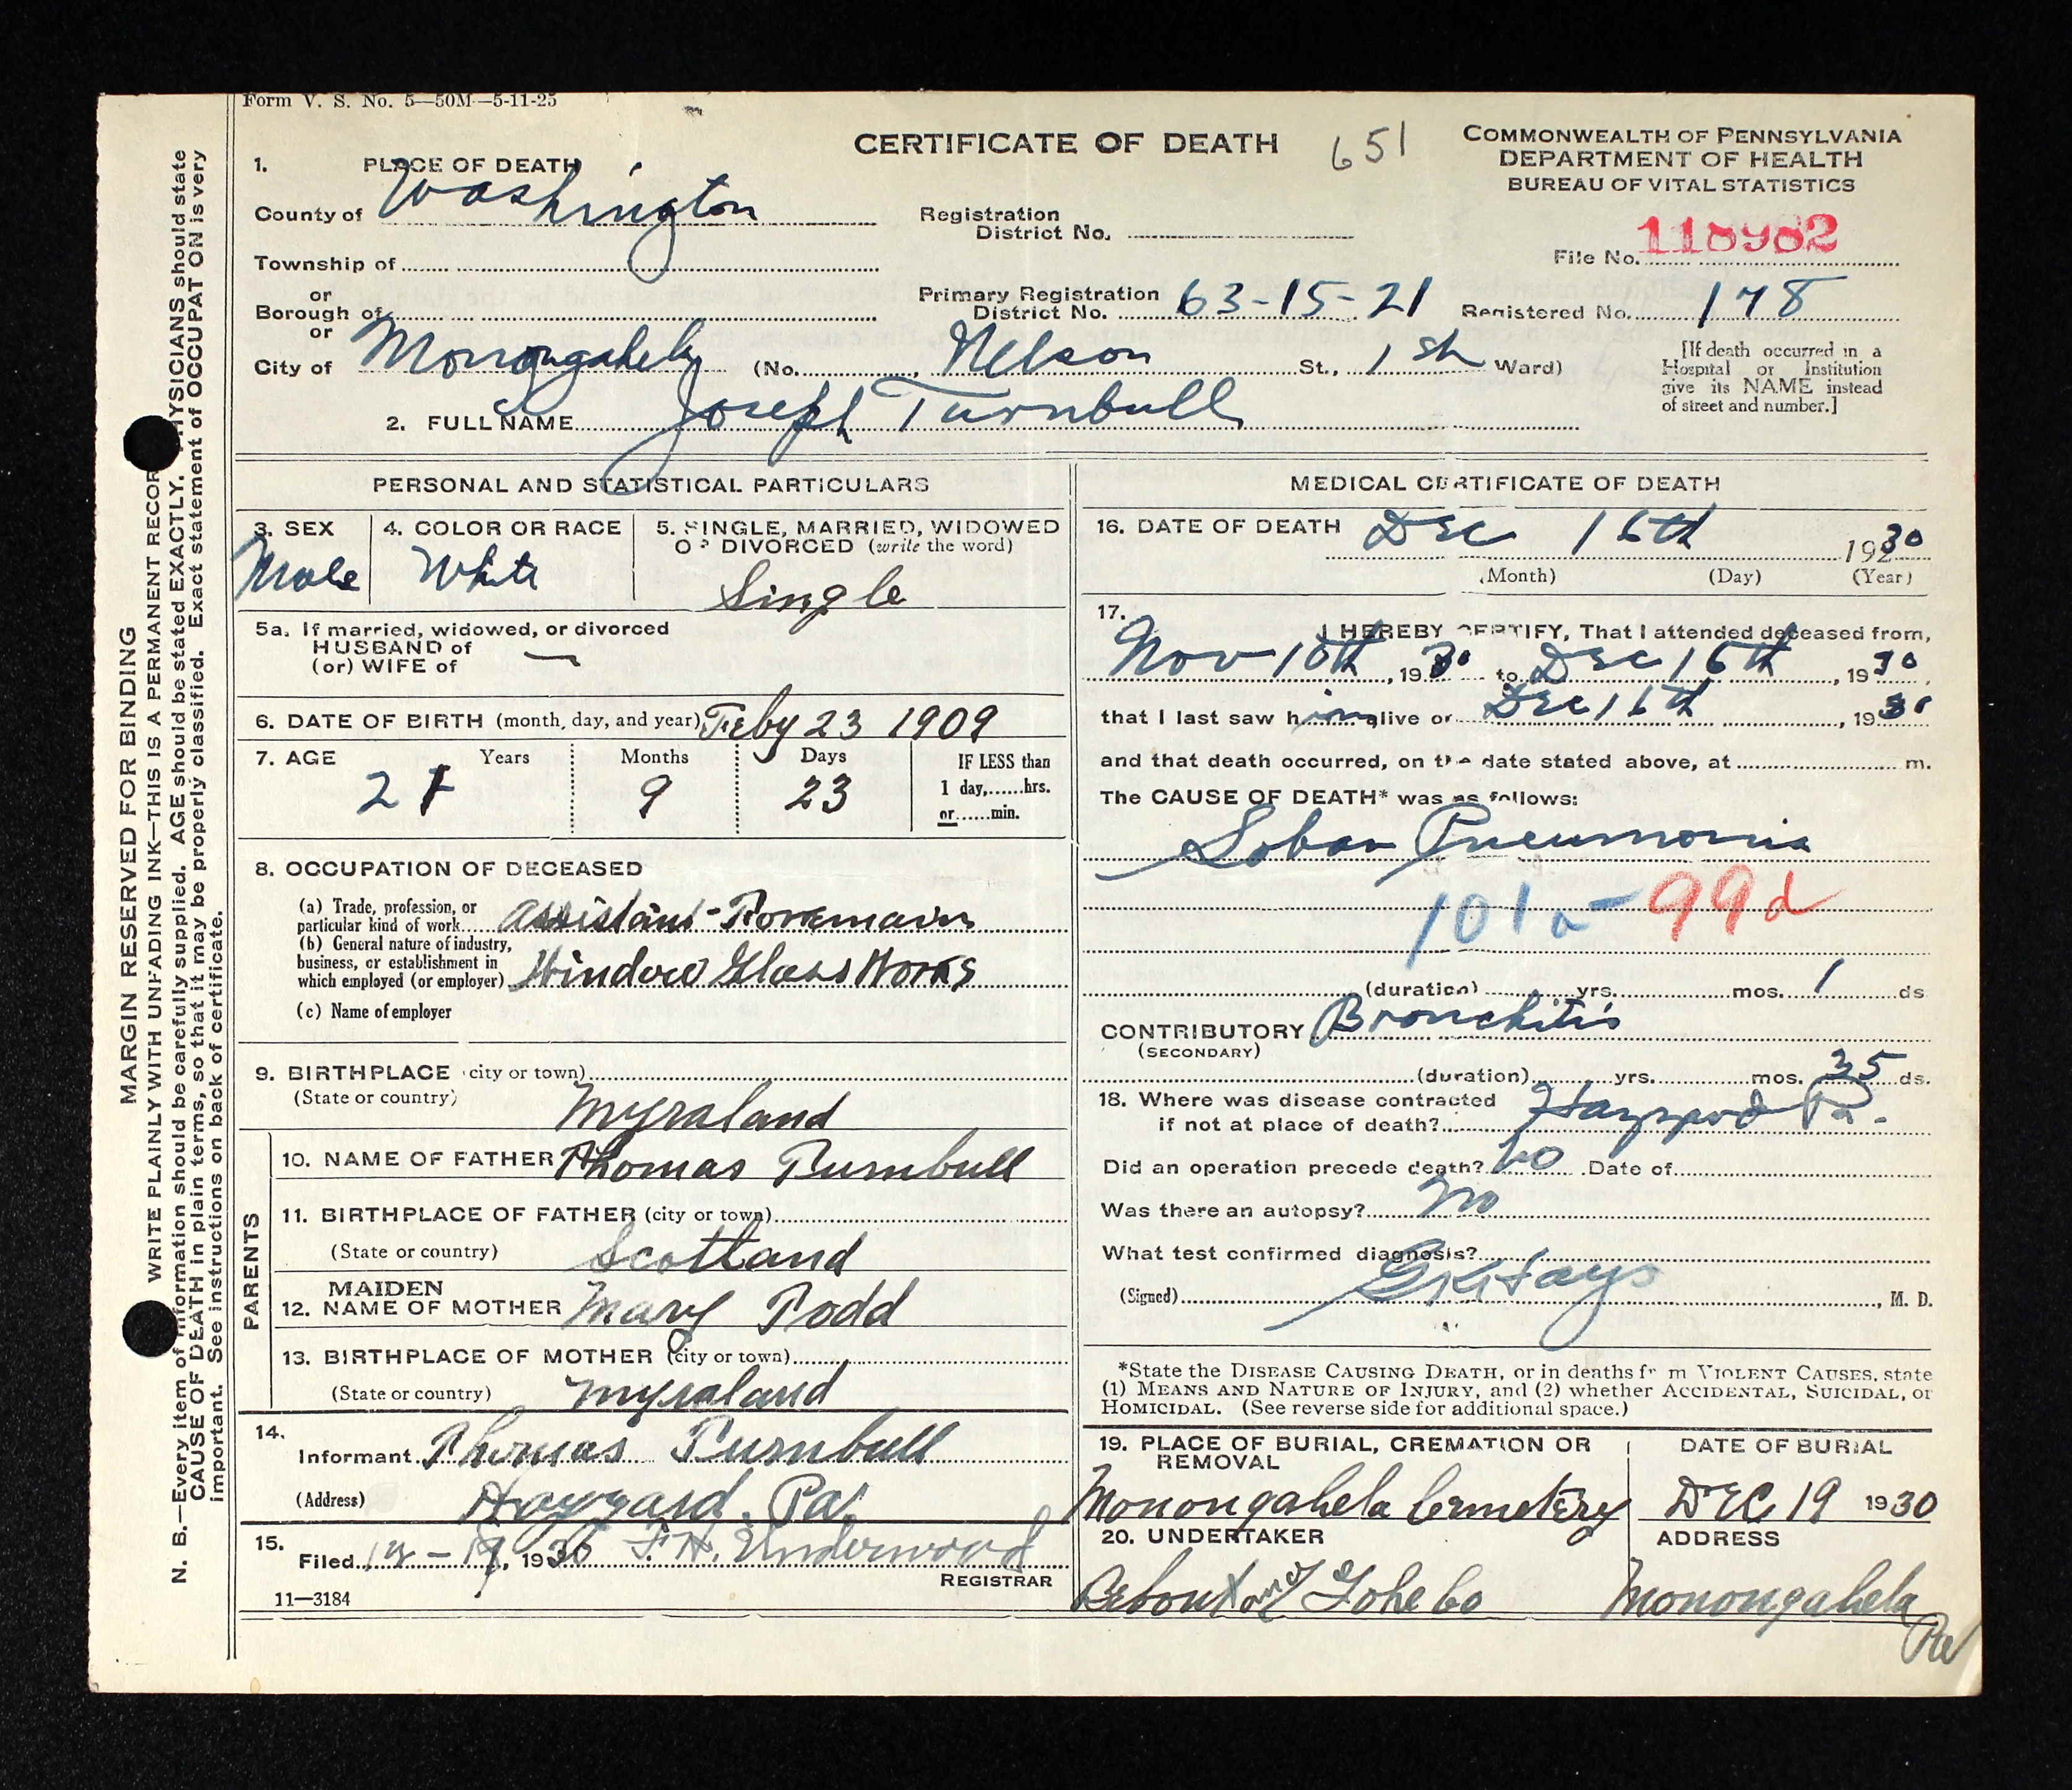 Form V. S. No. 5—50M—5-11-25
CERTIFICATE OF DEATH
651
COMMONWEALTH OF PENNSYLVANIA
DEPARTMENT OF HEALTH
BUREAU OF VITAL STATISTICS
1. PLACE OF DEATH
County of Washington
Registration District No.
File No. 118982
Township of
or
Borough of
Primary Registration District No. 63-15-21
Registered No. 178
or
City of Monongahela (No. , Nelson St., 1st Ward)
[If death occurred in a Hospital or Institution give its NAME instead of street and number.]
2. FULL NAME Joseph Turnbull
PERSONAL AND STATISTICAL PARTICULARS
3. SEX
Male
4. COLOR OR RACE
White
5. SINGLE, MARRIED, WIDOWED OR DIVORCED (write the word)
Single
5a. If married, widowed, or divorced
HUSBAND of
(or) WIFE of —
6. DATE OF BIRTH (month, day, and year) Feby 23 1909
7. AGE Years Months Days
21 9 23
IF LESS than
1 day,......hrs.
or......min.
8. OCCUPATION OF DECEASED
(a) Trade, profession, or particular kind of work Assistant
(b) General nature of industry, business, or establishment in which employed (or employer) Window Glass Works
(c) Name of employer
9. BIRTHPLACE (city or town)
(State or country) Myraland
PARENTS
10. NAME OF FATHER Thomas Turnbull
11. BIRTHPLACE OF FATHER (city or town)
(State or country) Scotland
12. MAIDEN NAME OF MOTHER Mary Todd
13. BIRTHPLACE OF MOTHER (city or town)
(State or country) Myraland
14. Informant Thomas Turnbull
(Address) Pa.
15. Filed 12-19, 1930 F. H. Underwood
REGISTRAR
11—3184
MEDICAL CERTIFICATE OF DEATH
16. DATE OF DEATH Dec 16th 1930
(Month) (Day) (Year)
17. I HEREBY CERTIFY, That I attended deceased from,
Nov 10th, 1930 to Dec 16th, 1930,
that I last saw him alive on Dec 16th, 1930
and that death occurred, on the date stated above, at m.
The CAUSE OF DEATH* was as follows:
Lobar Pneumonia
101a - 99d
(duration) yrs. mos. 1 ds
CONTRIBUTORY Bronchitis
(SECONDARY)
(duration) yrs. mos. 35 ds.
18. Where was disease contracted
if not at place of death? Pa.
Did an operation precede death? no Date of
Was there an autopsy? No
What test confirmed diagnosis?
(Signed) Hays, M. D.
*State the DISEASE CAUSING DEATH, or in deaths from VIOLENT CAUSES, state
(1) MEANS AND NATURE OF INJURY, and (2) whether ACCIDENTAL, SUICIDAL, or
HOMICIDAL. (See reverse side for additional space.)
19. PLACE OF BURIAL, CREMATION OR REMOVAL
DATE OF BURIAL
Monongahela Cemetery
DEC 19 1930
20. UNDERTAKER
ADDRESS
Bebout and Yohe Co
Monongahela Pa
MARGIN RESERVED FOR BINDING
WRITE PLAINLY WITH UNFADING INK—THIS IS A PERMANENT RECORD
N. B.—Every item of information should be carefully supplied. AGE should be stated EXACTLY. PHYSICIANS should state
CAUSE OF DEATH in plain terms, so that it may be properly classified. Exact statement of OCCUPATION is very
important. See instructions on back of certificate.